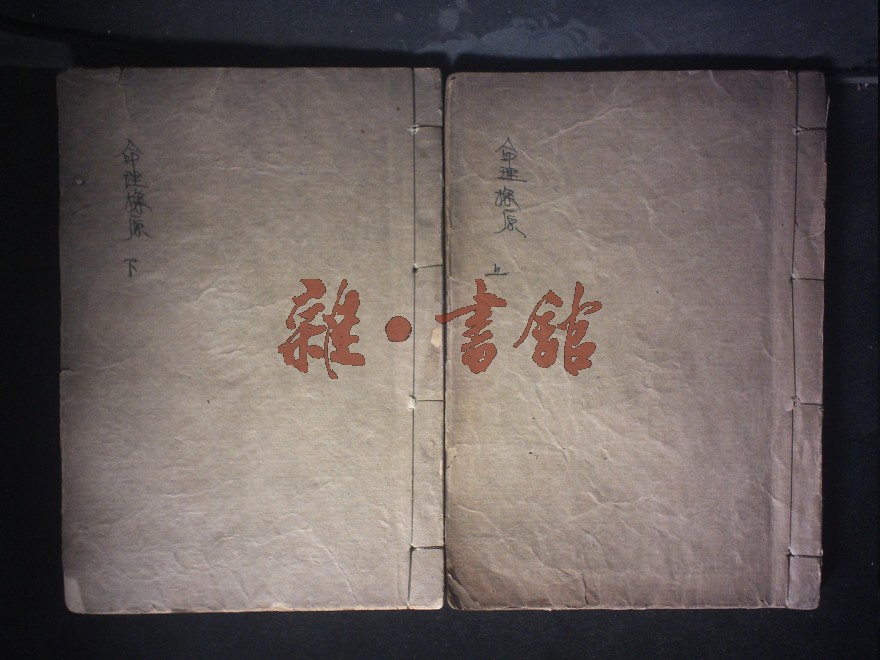 命理探原
上
命理探原
下
雜·書館